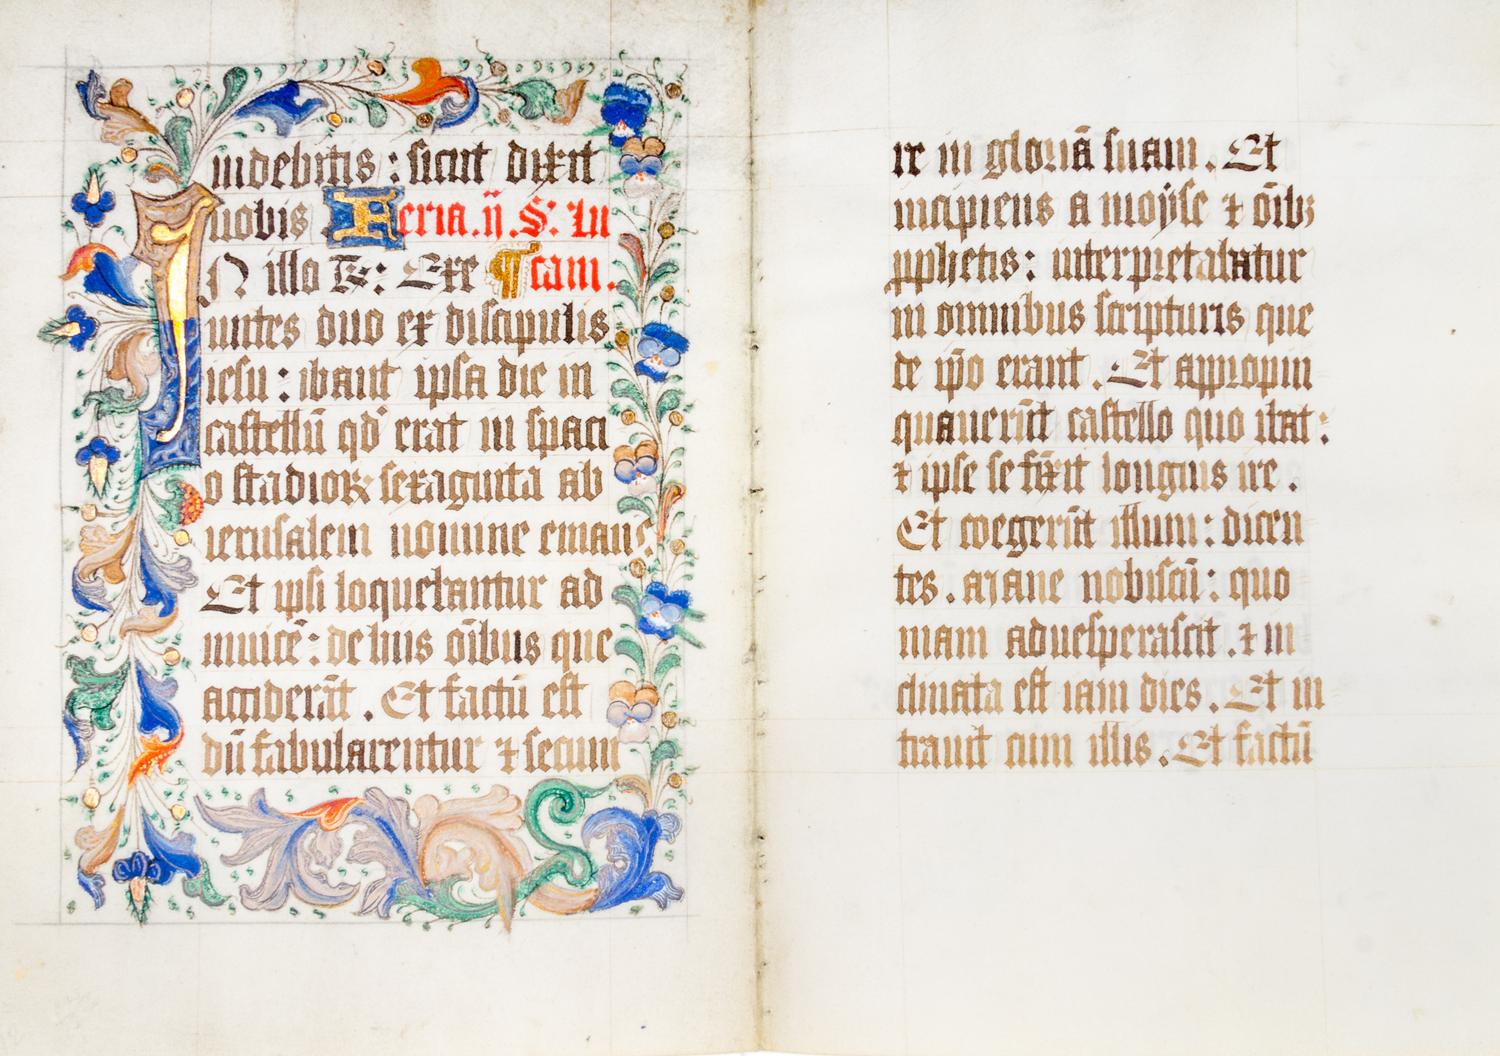 indebitis : sicut dixit
uobis Feria.ij.S: Lu
IN illo T̅: Exe ¶ cam.
untes duo ex discipulis
iesu : ibant ipsa die in
castellū qd̄ erat in spaci
o stadioꝝ sexaginta ab
ierusalem nomine emaus.
Et ipsi loquebantur ad
inuicē : de hiis oībus que
acciderāt . Et factū est
dū fabularentur ⁊ secum
re in gloriā suam . Et
incipiens a moÿse ⁊ oībꝫ
ꝓphetis : interpretabatur
in omnibus scripturis que
de ip̄o erant . Et appropin
quauerūt castello quo ibat :
⁊ ipse se fīxit longius ire .
Et coegerūt illum : dicen
tes . Mane nobiscū : quo
niam aduesperascit . ⁊ in
clinata est iam dies . Et in
trauit cum illis . Et factū